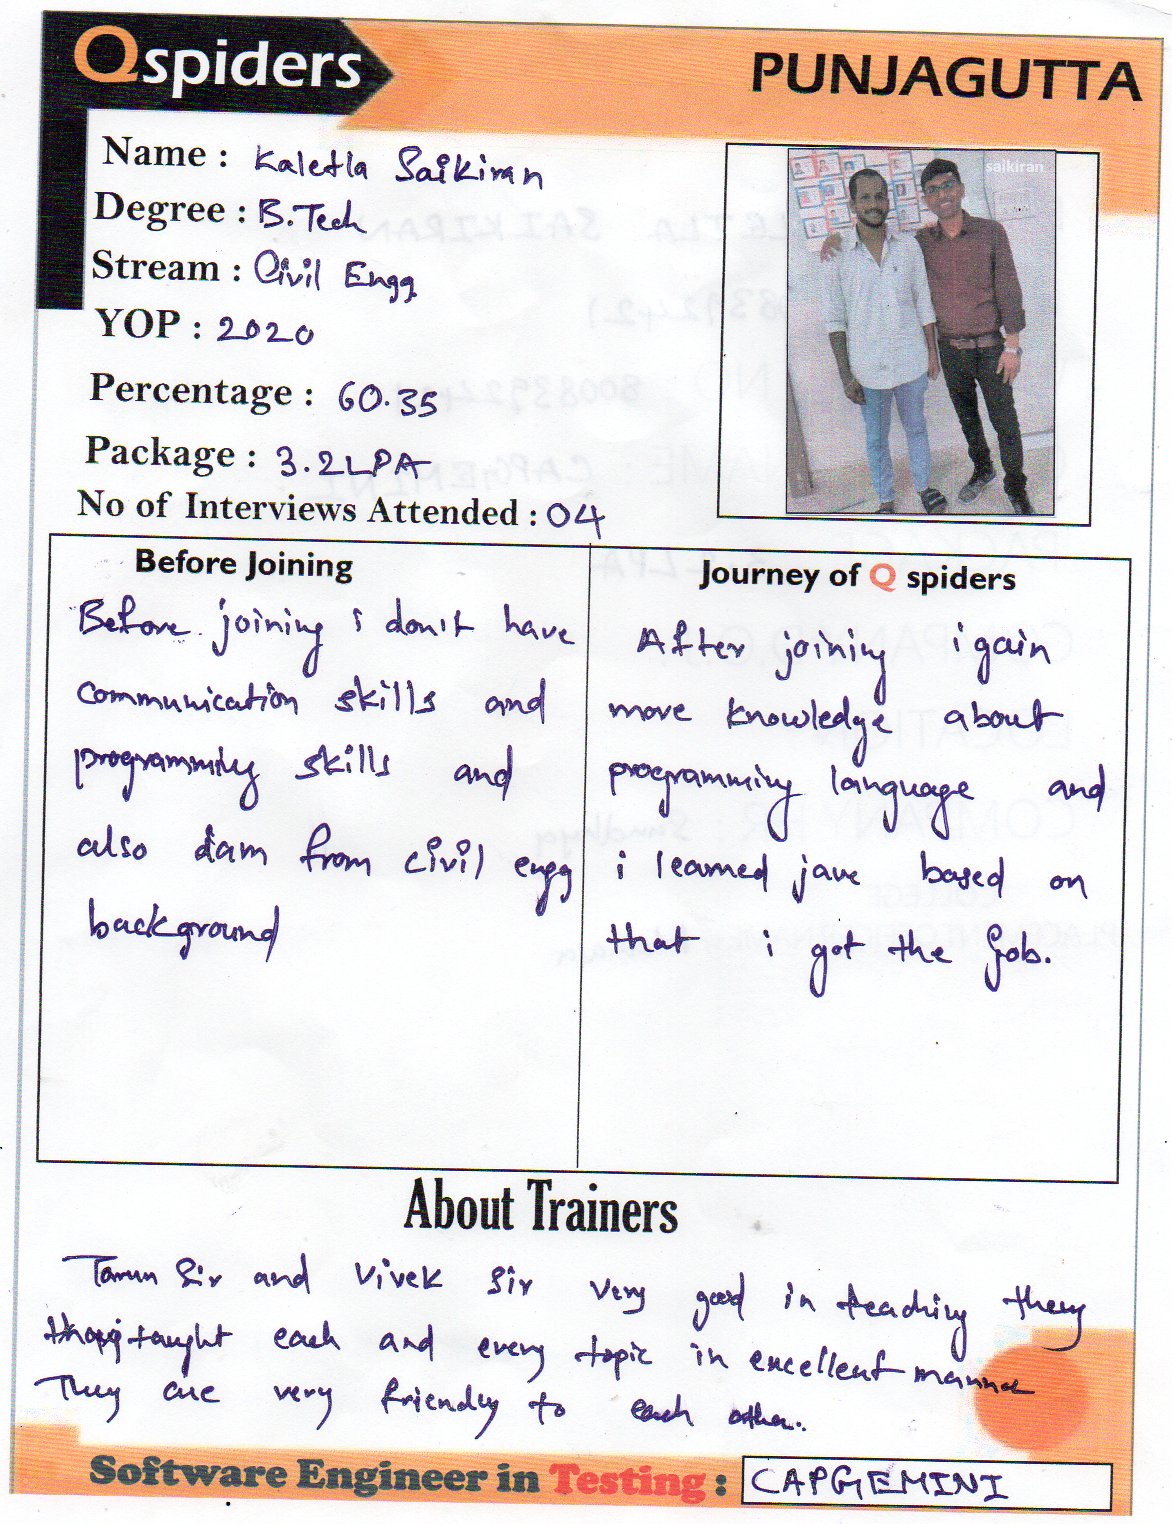 Qspiders
PUNJAGUTTA
Name : Kaletla Saikiran
saikiran
Degree : B.Tech
Stream : Civil Engg
YOP : 2020
Percentage : 60.35
Package : 3.2LPA
No of Interviews Attended : 04
Before Joining
Before joining i don't have
communication skills and
programming skills and
also iam from civil engg
background
Journey of Q spiders
After joining i gain
more knowledge about
programming language and
i learned jave based on
that i got the job.
About Trainers
Tarun Sir and Vivek Sir very good in teaching they
taught each and every topic in excellent manner
They are very friendly to each other.
Software Engineer in Testing : CAPGEMINI